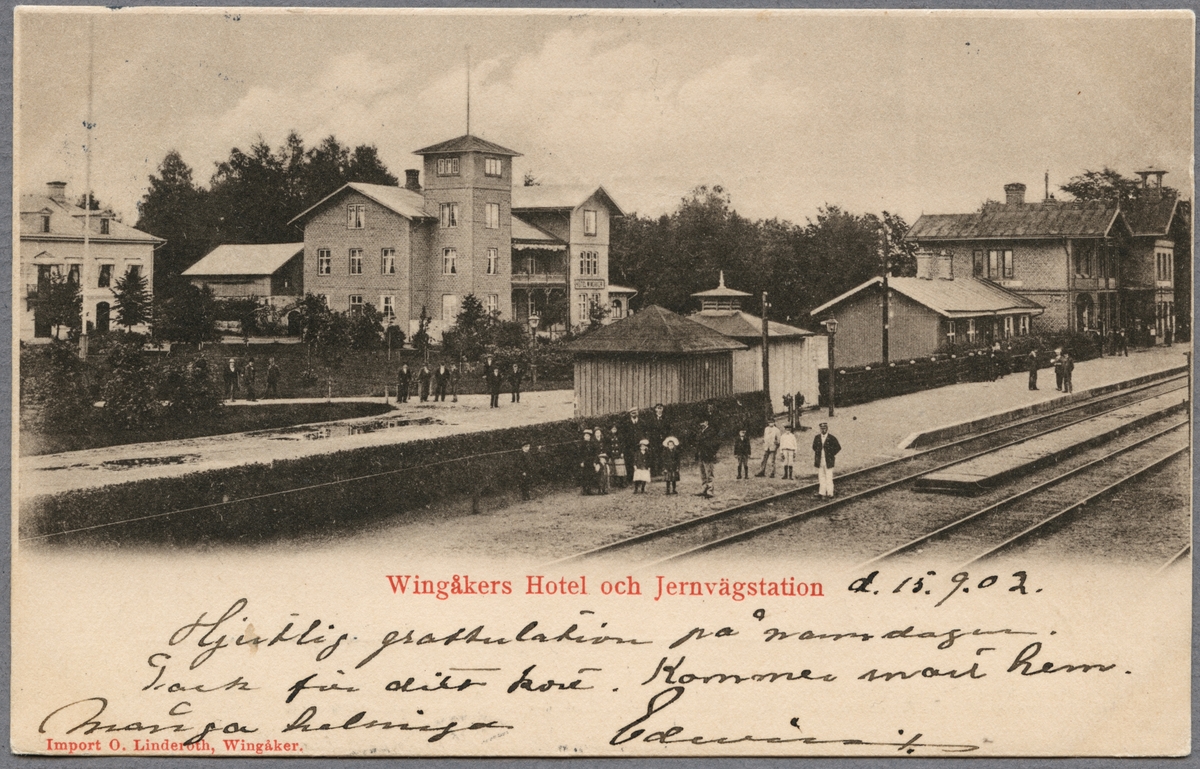 HOTEL WINGÅKER
Wingåkers Hotel och Jernvägstation d. 15.9.02.
Hjertlig grattulation på namndagen.
Tack för ditt kort. Kommer snart hem.
Många helsninga
Import O. Linderoth, Wingåker.